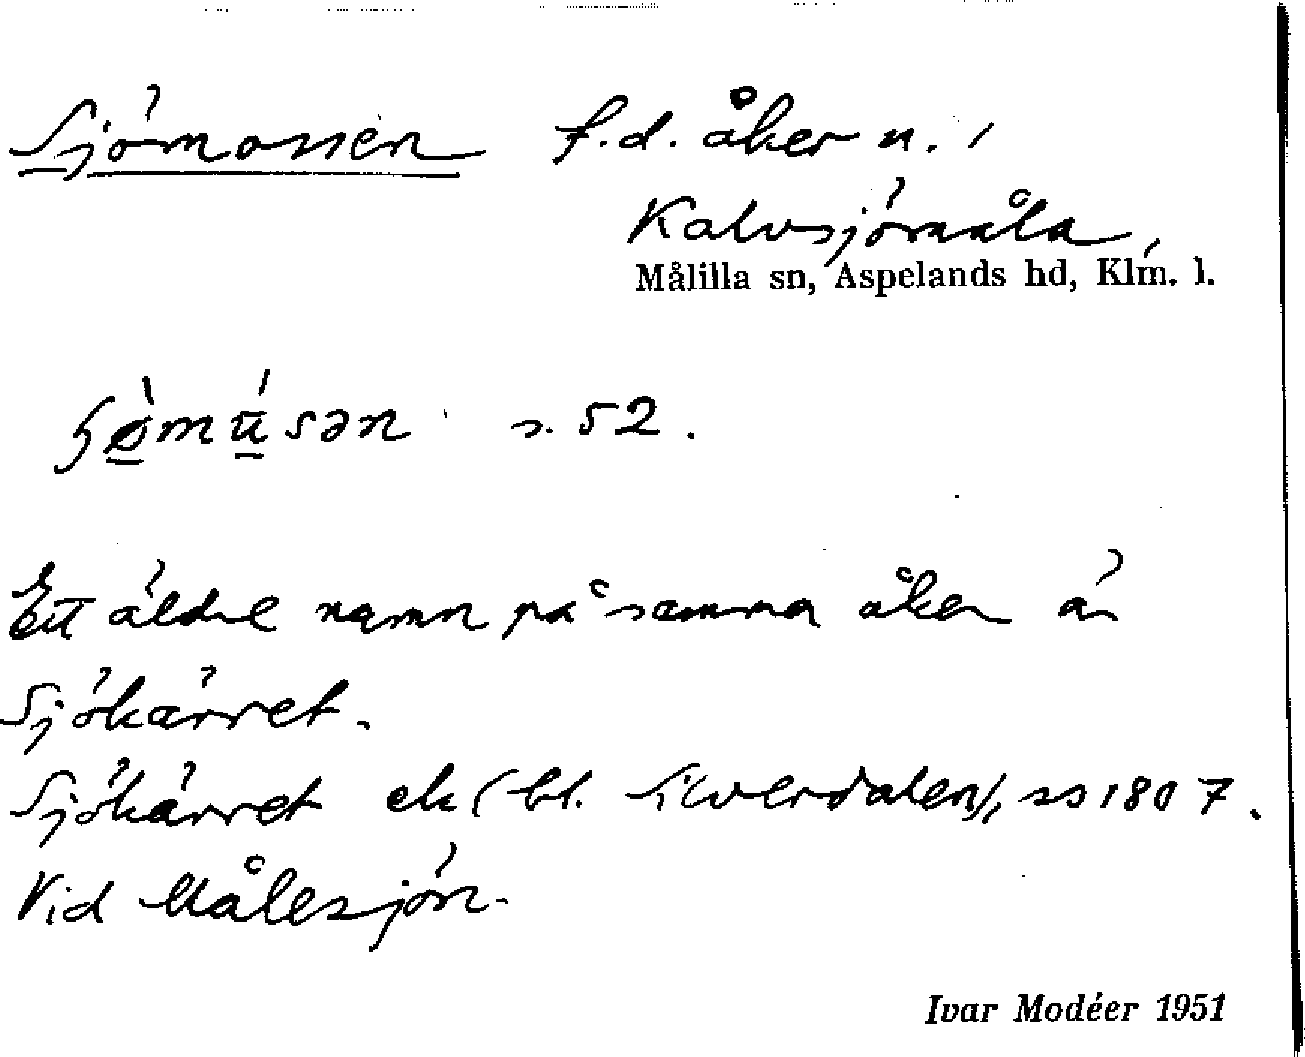 Sjömossen f.d. åker n. i
Kalvsjömåla,
Målilla sn, Aspelands hd, Klm. l.
s. 52.
Ett äldre namn på samma åker är
Sjökärret.
Sjökärret ek (bl. Silverdalen), ss 1807.
Vid Målesjön.
Ivar Modéer 1951